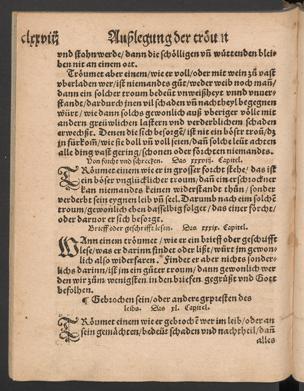 clxxviij Außlegung der tröum
vnd stohn werde/ dann die schölligen vñ wüttenden blei-
ben nit an einem ort.
Tröumet aber einem/ wie er voll/ oder mit wein zů vast
vberladen wer/ ist niemandts gůt/ weder weib noch man/
dann ein solcher troum bedeüt vnweißheyt vnnd vnuer
stande/ dardurch jnen vil schaden vñ nachtheyl begegnen
würt/ wie dann solchs gewonlich auß vberiger völle mit
andern greüwlichen lastern vnd verderblichen schaden
erwechßt. Denen die sich besorgē/ ist nit ein böser troū/ dz
jn fürkom/ wie sie doll vñ voll seyen/ dañ solche leüt achten
alle ding vast gering/ schonen oder förchten niemandts.
Von forcht vnd schrecken. Das xxxviij. Capitel.
TRöumet einem wie er in grosser forcht stehe/ das ist
ein böser vnglücklicher troum/ dañ ein erschrockner
kan niemandts keinen widerstandt thůn/ sonder
verderbt sein eygnen leib vñ seel. Darumb nach eim solchē
troum/ gewonlich eben dasselbig folget/ das einer förchte/
oder darnor er sich besorgt.
Brieff oder geschrifft lesen. Das xxxix. Capitel.
WAnn einem tröumet/ wie er ein brieff oder geschrifft
lese/ was er darinn findet oder lißt/ würt jm gewon-
lich also widerfaren. Findet er aber nichts sonder-
lichs darinn/ ist jm ein gůter troum/ dann gewonlich wer
den wir zům wenigsten in den brieffen gegrüßt vnd Gott
befolhen.
¶ Gebrochen sein/ oder anders gepresten des
leibs. Das xl. Capitel.
TRöumet einem wie er gebrochē wer im leib/ oder an
sein gemächten/ bedeüt schaden vnd nachtheil/ dañ
alles